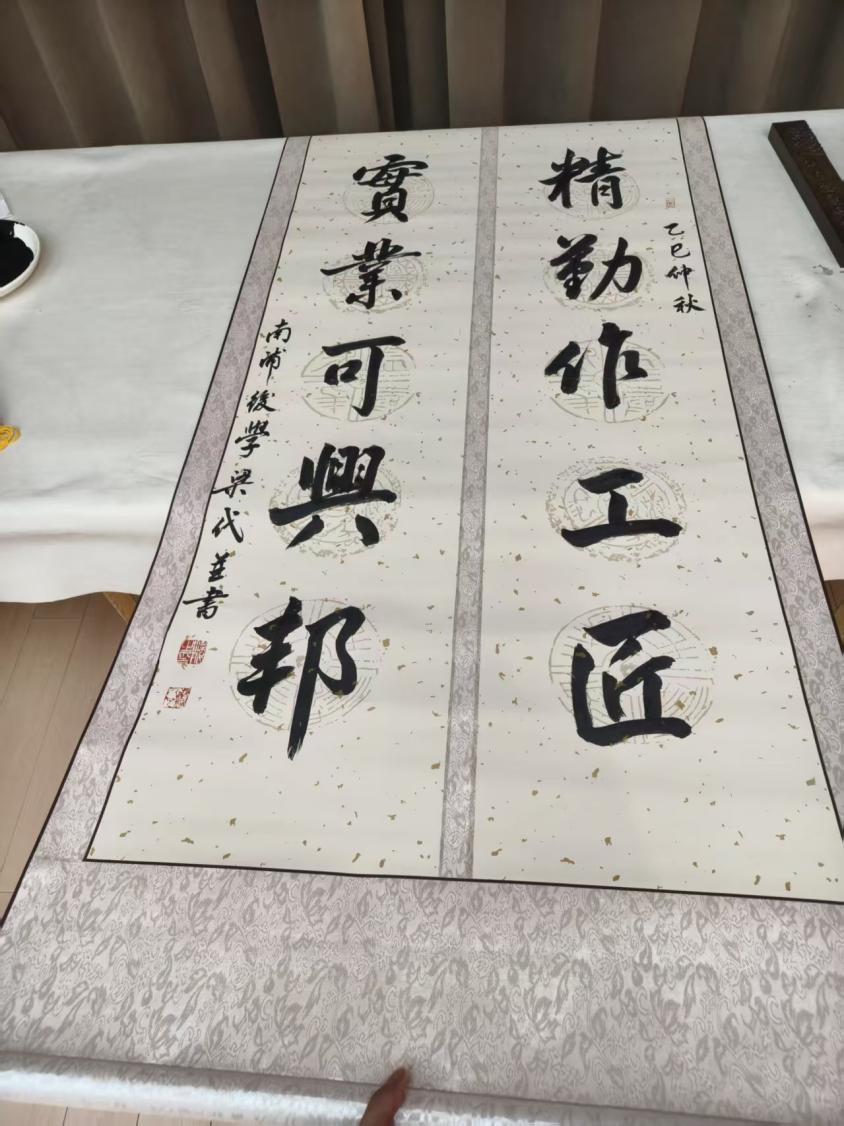 乙巳仲秋
精勤作工匠
實業可興邦
南浦後學梁代並書